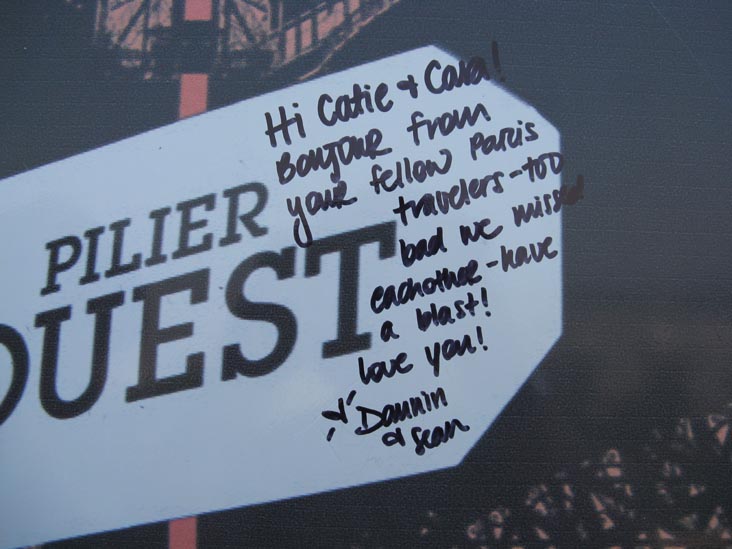 Hi Catie & Cara!
Bonjour from
your fellow Paris
travelers-too
bad we missed
eachother-have
a blast!
love you!
Dannin
& Sean
PILIER
OUEST